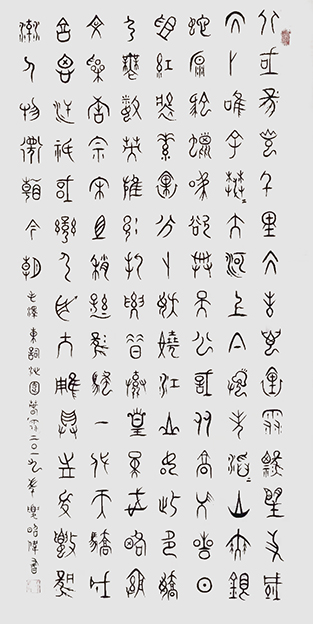 北國風光千里冰封萬里雪飄望長城
內外唯余莽=大河上下頓失滔=山舞銀
蛇原馳蠟象欲與天公試比高須晴日
看紅裝素裹分外妖嬈江山如此多嬌
引無數英雄競折腰惜秦皇漢武略輸
文采唐宗宋祖稍遜風騷一代天驕成
吉思汗祇識彎弓射大雕俱往矣數風
流人物還看今朝
毛澤東詞沁園春雪二〇一九年昭偉書